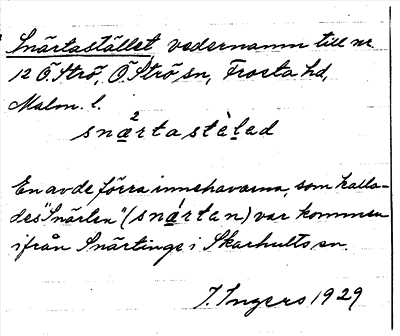 Snärtastället vedernamn till nr
12 Ö. Strö, Ö. Strö sn, Frosta hd,
Malm. l.
sną²rtastèląd
En av de förra innehavarna, som kalla-
des "Snärten" (sną́rtan) var kommen
ifrån Snärtinge i Skarhults sn.
I. Ingers 1929